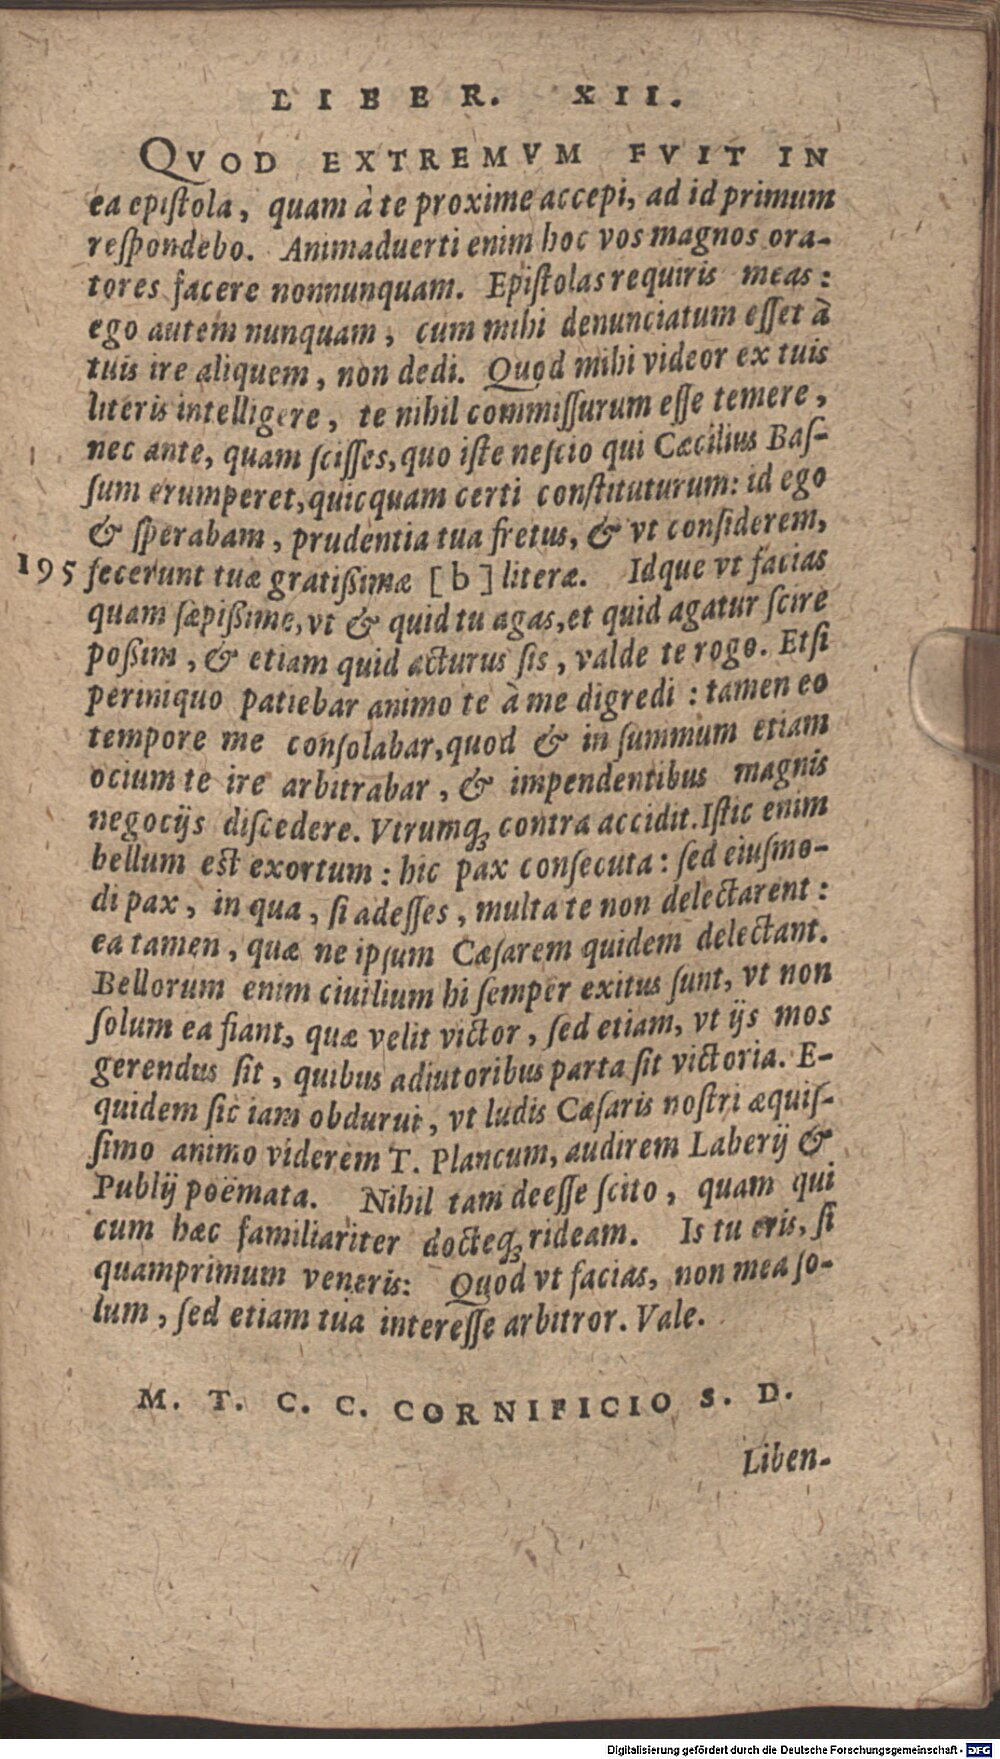 LIBER. XII.
QVOD EXTREMVM FVIT IN
ea epiſtola, quam à te proxime accepi, ad id primum
reſpondebo. Animaduerti enim hoc vos magnos ora-
tores facere nonnunquam. Epiſtolas requiris meas:
ego autem nunquam, cum mihi denunciatum eſſet à
tuis ire aliquem, non dedi. Quod mihi videor ex tuis
literis intelligere, te nihil commiſſurum eſſe temere,
nec ante, quam ſciſſes, quo iſte neſcio qui Cæcilius Baſ-
ſum erumperet, quicquam certi conſtituturum: id ego
& ſperabam, prudentia tua fretus, & vt conſiderem,
195 fecerunt tuæ gratißimæ [b] literæ. Idque vt facias
quam ſæpißime, vt & quid tu agas, et quid agatur ſcire
poßim, & etiam quid acturus ſis, valde te rogo. Etſi
periniquo patiebar animo te à me digredi: tamen eo
tempore me conſolabar, quod & in ſummum etiam
ocium te ire arbitrabar, & impendentibus magnis
negocijs diſcedere. Vtrumq́; contra accidit. Iſtic enim
bellum eſt exortum: hic pax conſecuta: ſed eiuſmo-
di pax, in qua, ſi adeſſes, multa te non delectarent:
ea tamen, quæ ne ipſum Cæſarem quidem delectant.
Bellorum enim ciuilium hi ſemper exitus ſunt, vt non
ſolum ea fiant, quæ velit victor, ſed etiam, vt ijs mos
gerendus ſit, quibus adiutoribus parta ſit victoria. E-
quidem ſic iam obdurui, vt ludis Cæſaris noſtri æquiſ-
ſimo animo viderem T. Plancum, audirem Laberij &
Publij poëmata. Nihil tam deeſſe ſcito, quam qui
cum hæc familiariter docteq́; rideam. Is tu eris, ſi
quamprimum veneris: Quod vt facias, non mea ſo-
lum, ſed etiam tua intereſſe arbitror. Vale.
M. T. C. C. CORNIFICIO S. D.
Liben-
Digitalisierung gefördert durch die Deutsche Forschungsgemeinschaft - DFG